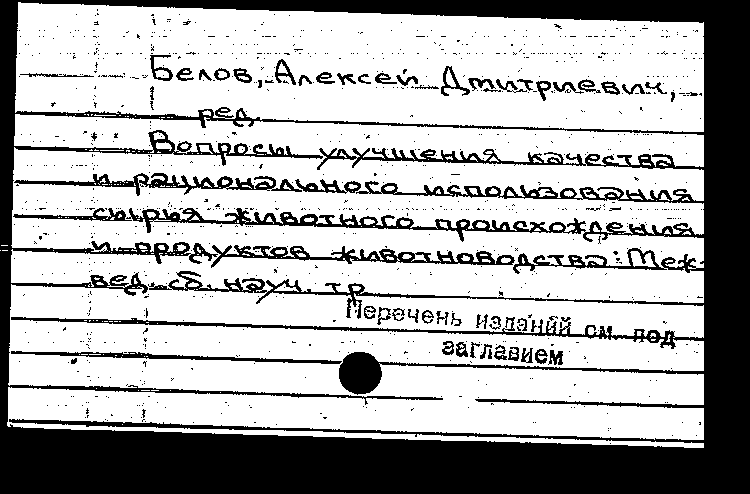 Белов, Алексей Дмитриевич,
ред.
Вопросы улучшения качества
и рационального использования
сырья животного происхождения
и продуктов животноводства: Меж-
вед. сб. науч. тр.
Перечень изданий см. под
заглавием